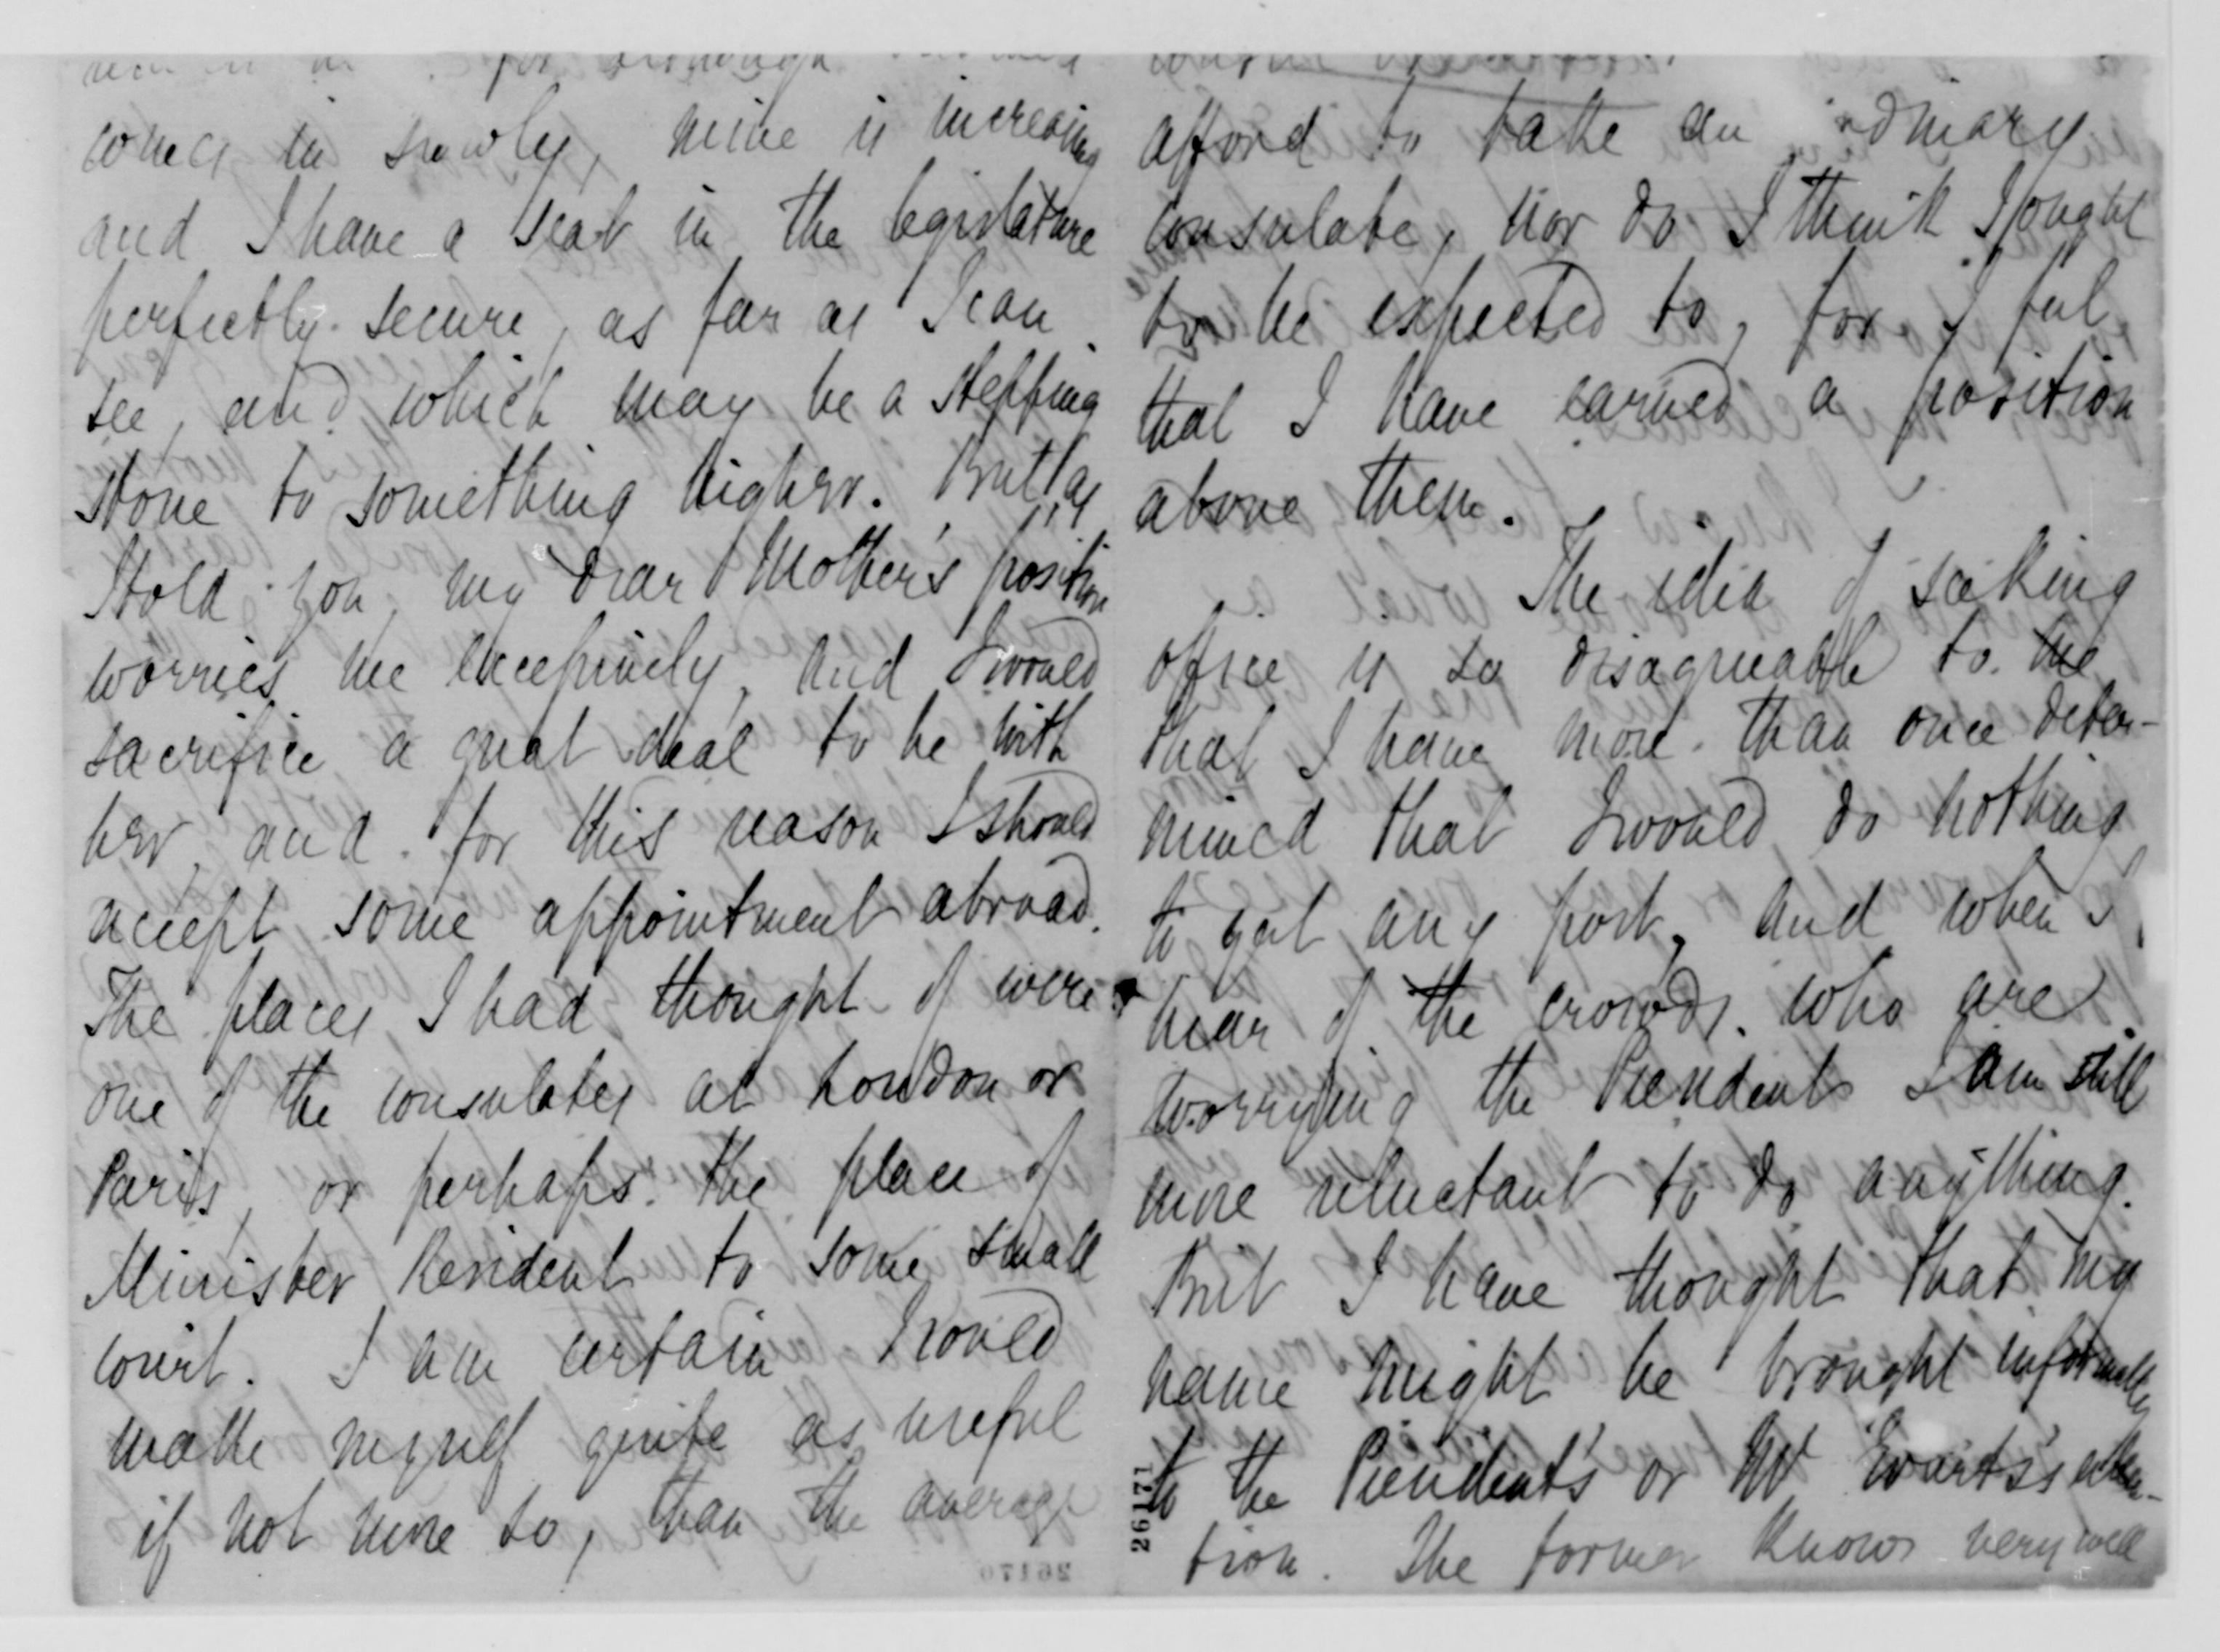 for although
comes in slowly, mine is increasing
and I have a seat in the legislature
perfectly secure, as far as I can
see, and which may be a stepping
stone to something higher. But as
I told you, my dear Mother's position
worries me excessively, and I would
sacrifice a great deal to be with
her, and for this reason I should
accept some appointment abroad.
The places I had thought of were
one of the consulates at London or
Paris, or perhaps the place of
Minister Resident to some small
court. I am certain I could
make myself quite as useful
if not more so, than the average
26170
afford to take an ordinary
consulate, nor do I think I ought
to be expected to, for I feel
that I have earned a position
above them.
The idea of seeking
office is so disagreeable to me
that I have more than once deter-
mined that I would do nothing
to get any post, and when I
hear of the crowds who are
worrying the President I am still
more reluctant to do anything.
But I have thought that my
name might be brought informally
to the President's or Mr Evarts's atten-
tion. The former knows very well
26171